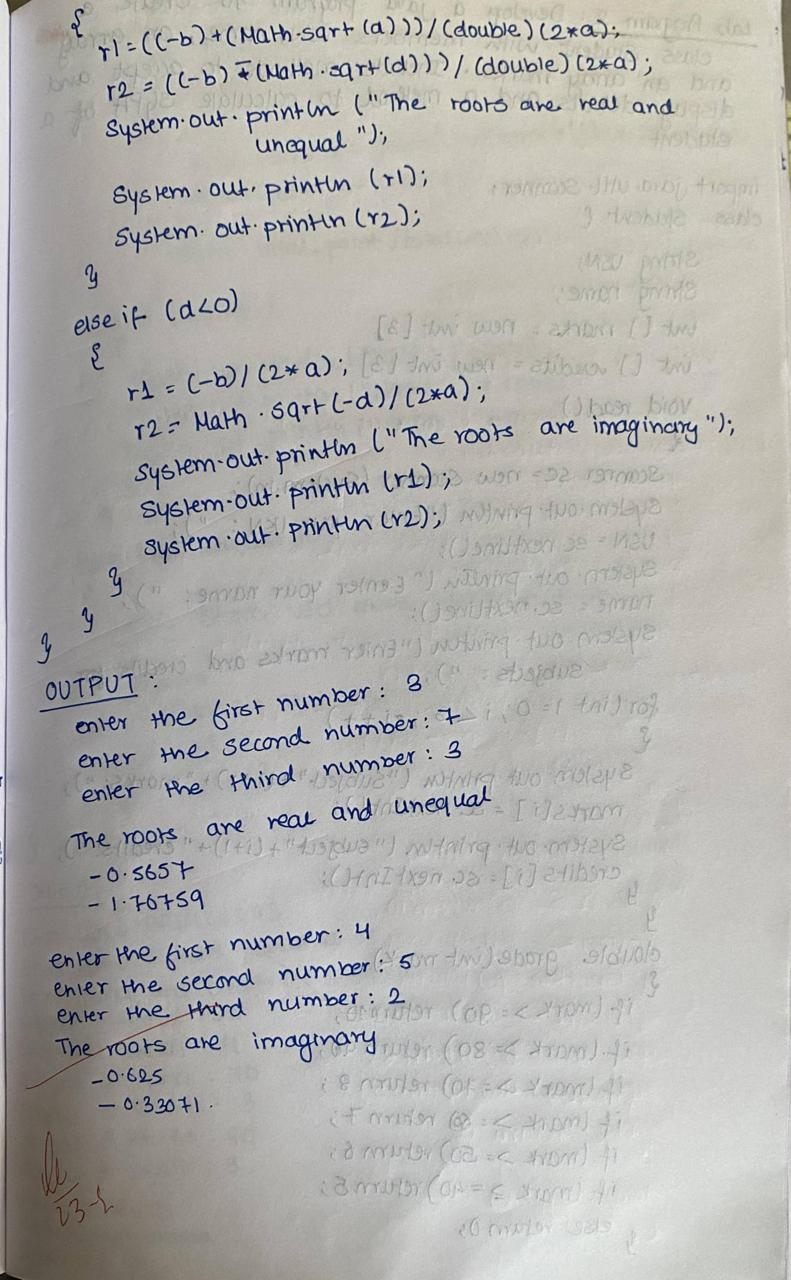 {
r1 = ((-b)+(Math.sqrt(d)))/(double)(2*a);
r2 = ((-b)-(Math.sqrt(d)))/(double)(2*a);
System.out.println ("The roots are real and
unequal");
System.out.println (r1);
System.out.println (r2);
}
else if (d<0)
{
r1 = (-b)/(2*a);
r2 = Math.sqrt(-d)/(2*a);
System.out.println ("The roots are imaginary");
System.out.println (r1);
System.out.println (r2);
}
}
}
OUTPUT :
enter the first number : 3
enter the second number : 7
enter the third number : 3
The roots are real and unequal
-0.5657
-1.76759
enter the first number : 4
enter the second number : 5
enter the third number : 2
The roots are imaginary
-0.625
-0.33071.